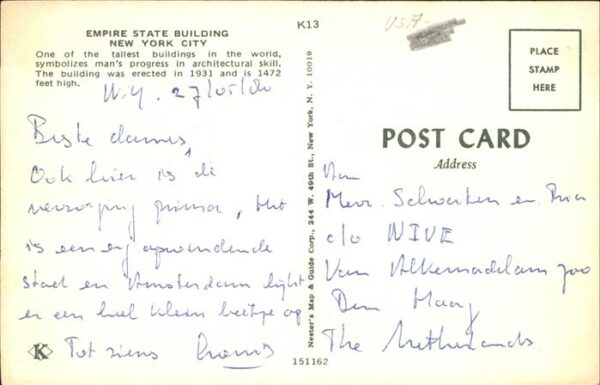 K13
USA
EMPIRE STATE BUILDING
NEW YORK CITY
One of the tallest buildings in the world,
symbolizes man's progress in architectural skill.
The building was erected in 1931 and is 1472
feet high.
N.Y. 27/05/80
Beste dames,
Ook hier is de
verzorging prima, Het
is een erg opwindende
stad en Amsterdam lijkt
er een heel klein beetje op
Tot ziens
K
Nester's Map & Guide Corp., 244 W. 49th St., New York, N. Y. 10019
151162
PLACE
STAMP
HERE
POST CARD
Address
Aan
Mevr. Scholten en Ria
c/o NIVE
Van Alkemadelaan 700
Den Haag
The Netherlands